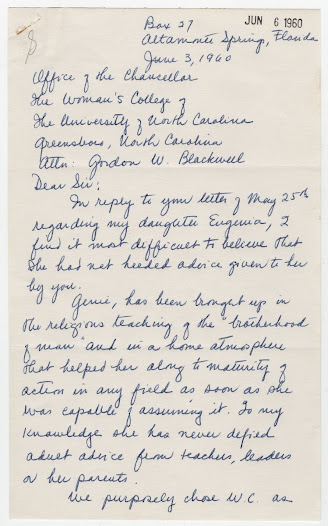 Box 27
JUN 6 1960
Altamonte Springs, Florida
June 3, 1960
Office of the Chancellor
The Woman's College of
The University of North Carolina
Greensboro, North Carolina
Attn: Gordon W. Blackwell
Dear Sir;
In reply to your letter of May 25th
regarding my daughter Eugenia, I
find it most difficult to believe that
she had not heeded advice given to her
by you.
Genie, has been brought up in
the religious teaching of the "brotherhood
of man" and in a home atmosphere
that helped her along to maturity of
action in any field as soon as she
was capable of assuming it. To my
knowledge she has never defied
adult advice from teachers, leaders
or her parents.
We purposely chose W.C. as